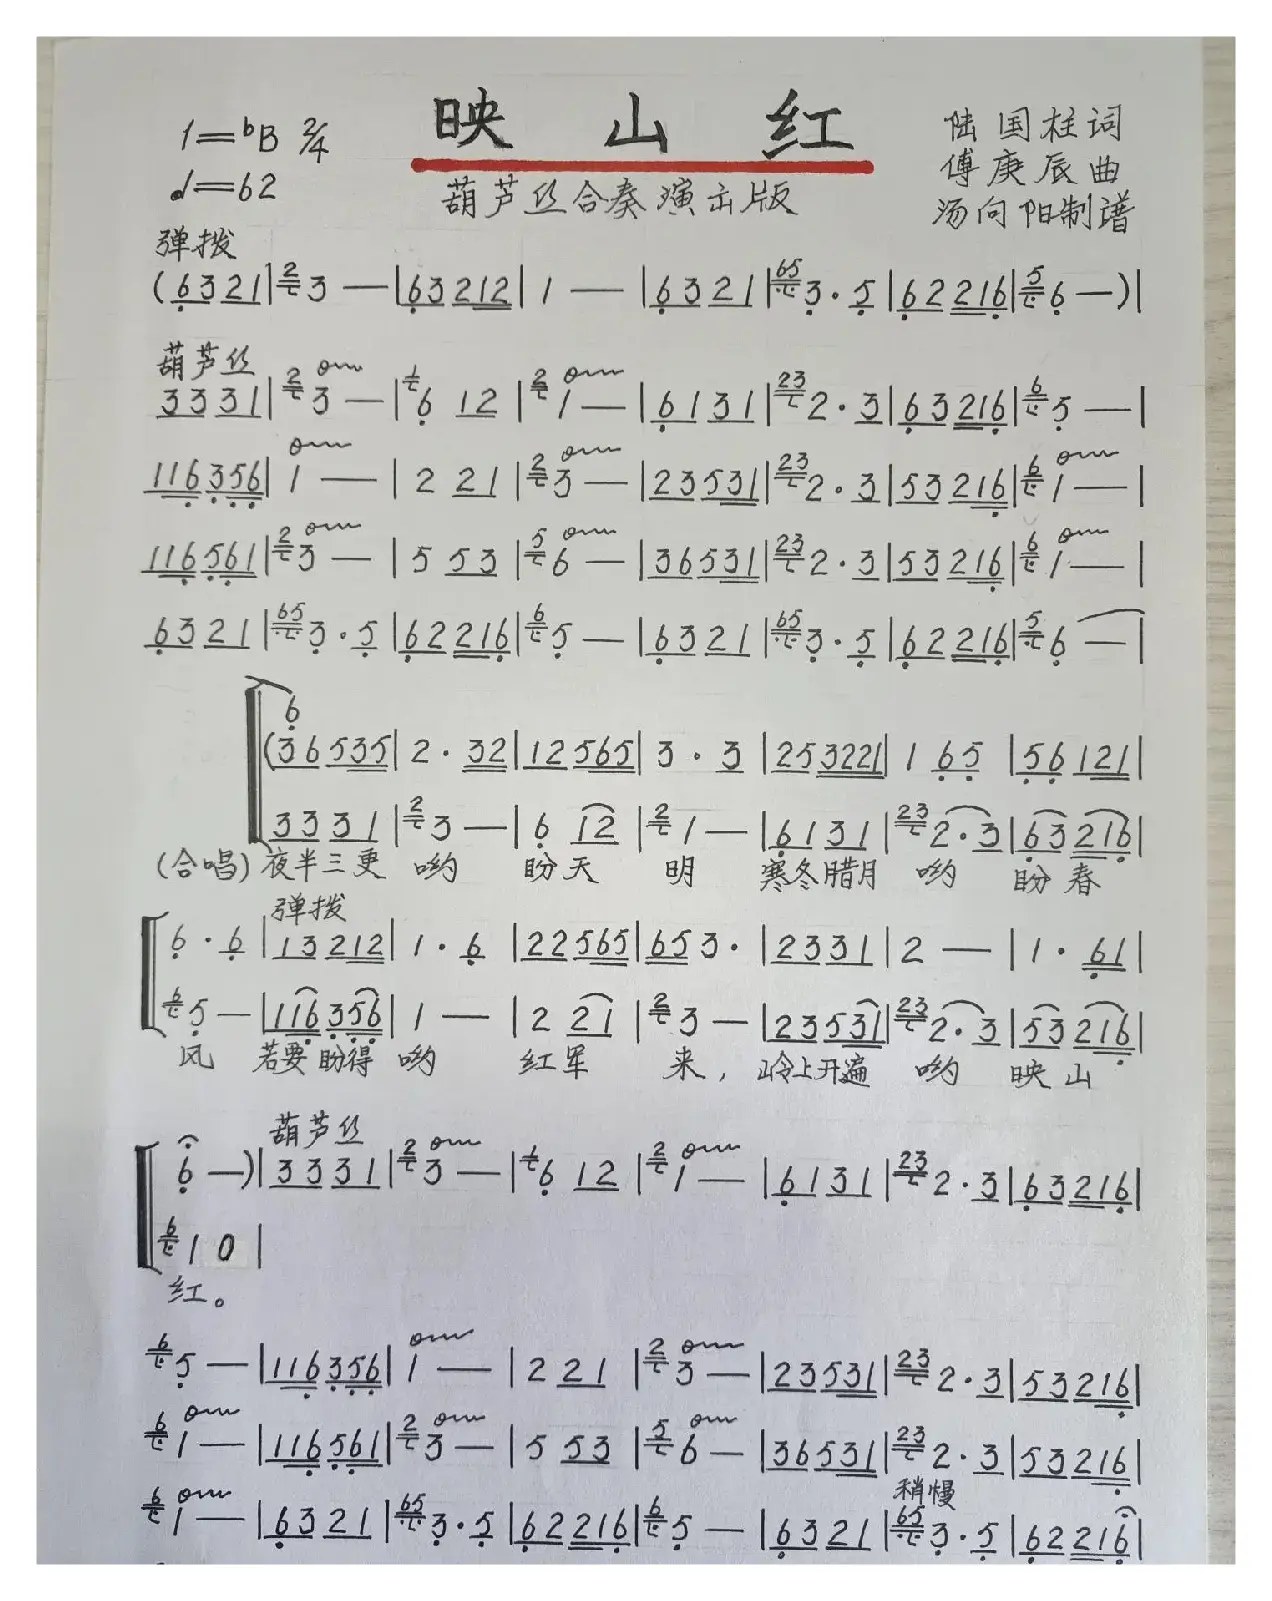 映山红
1=ᵇB 2/4
♩=62
葫芦丝合奏演出版
陆国柱词
傅庚辰曲
汤向阳制谱
弹拨
(6321|2 3—|63212|1—|6321|65 3·5|62216|5 6—)|
葫芦丝
3331|2 3—|1 6 12|2 1—|6131|23 2·3|63216|6 5—|
116356|1—|2 21|2 3—|23531|23 2·3|53216|6 1—|
116561|2 3—|5 53|5 6—|36531|23 2·3|53216|6 1—|
6321|65 3·5|62216|6 5—|6321|65 3·5|62216|5 6—|
6
(36535|2·32|12565|3·3|253221|1 65|56121|
3331|2 3—|6 12|2 1—|6131|23 2·3|63216|
(合唱)夜半三更 哟 盼天 明 寒冬腊月 哟 盼春
弹拨
6·6|13212|1·6|22565|653·|2331|2—|1·61|
6 5—|116356|1—|2 21|2 3—|23531|23 2·3|53216|
风 若要盼得 哟 红军 来,岭上开遍 哟 映山
葫芦丝
6—)|3331|2 3—|1 6 12|2 1—|6131|23 2·3|63216|
6 1 0|
红。
6 5—|116356|1—|2 21|2 3—|23531|23 2·3|53216|
6 1—|116561|2 3—|5 53|5 6—|36531|23 2·3|53216|
稍慢
6 1—|6321|65 3·5|62216|6 5—|6321|65 3·5|62216|